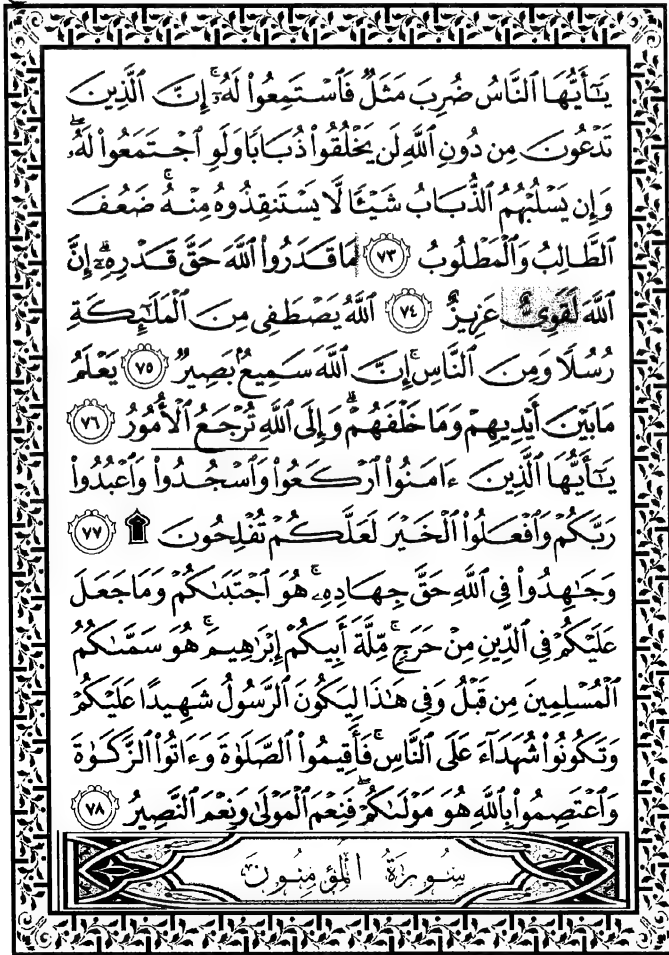 يَـٰٓأَيُّهَا ٱلنَّاسُ ضُرِبَ مَثَلٌ فَٱسْتَمِعُوا۟ لَهُۥٓ ۚ إِنَّ ٱلَّذِينَ
تَدْعُونَ مِن دُونِ ٱللَّهِ لَن يَخْلُقُوا۟ ذُبَابًا وَلَوِ ٱجْتَمَعُوا۟ لَهُۥ ۖ
وَإِن يَسْلُبْهُمُ ٱلذُّبَابُ شَيْـًٔا لَّا يَسْتَنقِذُوهُ مِنْهُ ۚ ضَعُفَ
ٱلطَّالِبُ وَٱلْمَطْلُوبُ ٧٣ مَا قَدَرُوا۟ ٱللَّهَ حَقَّ قَدْرِهِۦٓ ۗ إِنَّ
ٱللَّهَ لَقَوِىٌّ عَزِيزٌ ٧٤ ٱللَّهُ يَصْطَفِى مِنَ ٱلْمَلَـٰٓئِكَةِ
رُسُلًا وَمِنَ ٱلنَّاسِ ۚ إِنَّ ٱللَّهَ سَمِيعٌۢ بَصِيرٌ ٧٥ يَعْلَمُ
مَا بَيْنَ أَيْدِيهِمْ وَمَا خَلْفَهُمْ ۗ وَإِلَى ٱللَّهِ تُرْجَعُ ٱلْأُمُورُ ٧٦
يَـٰٓأَيُّهَا ٱلَّذِينَ ءَامَنُوا۟ ٱرْكَعُوا۟ وَٱسْجُدُوا۟ وَٱعْبُدُوا۟
رَبَّكُمْ وَٱفْعَلُوا۟ ٱلْخَيْرَ لَعَلَّكُمْ تُفْلِحُونَ ۩ ٧٧
وَجَـٰهِدُوا۟ فِى ٱللَّهِ حَقَّ جِهَادِهِۦ ۚ هُوَ ٱجْتَبَىٰكُمْ وَمَا جَعَلَ
عَلَيْكُمْ فِى ٱلدِّينِ مِنْ حَرَجٍ ۚ مِّلَّةَ أَبِيكُمْ إِبْرَٰهِيمَ ۚ هُوَ سَمَّىٰكُمُ
ٱلْمُسْلِمِينَ مِن قَبْلُ وَفِى هَـٰذَا لِيَكُونَ ٱلرَّسُولُ شَهِيدًا عَلَيْكُمْ
وَتَكُونُوا۟ شُهَدَآءَ عَلَى ٱلنَّاسِ ۚ فَأَقِيمُوا۟ ٱلصَّلَوٰةَ وَءَاتُوا۟ ٱلزَّكَوٰةَ
وَٱعْتَصِمُوا۟ بِٱللَّهِ هُوَ مَوْلَىٰكُمْ ۖ فَنِعْمَ ٱلْمَوْلَىٰ وَنِعْمَ ٱلنَّصِيرُ ٧٨
سُورَةُ المُؤْمِنُونَ